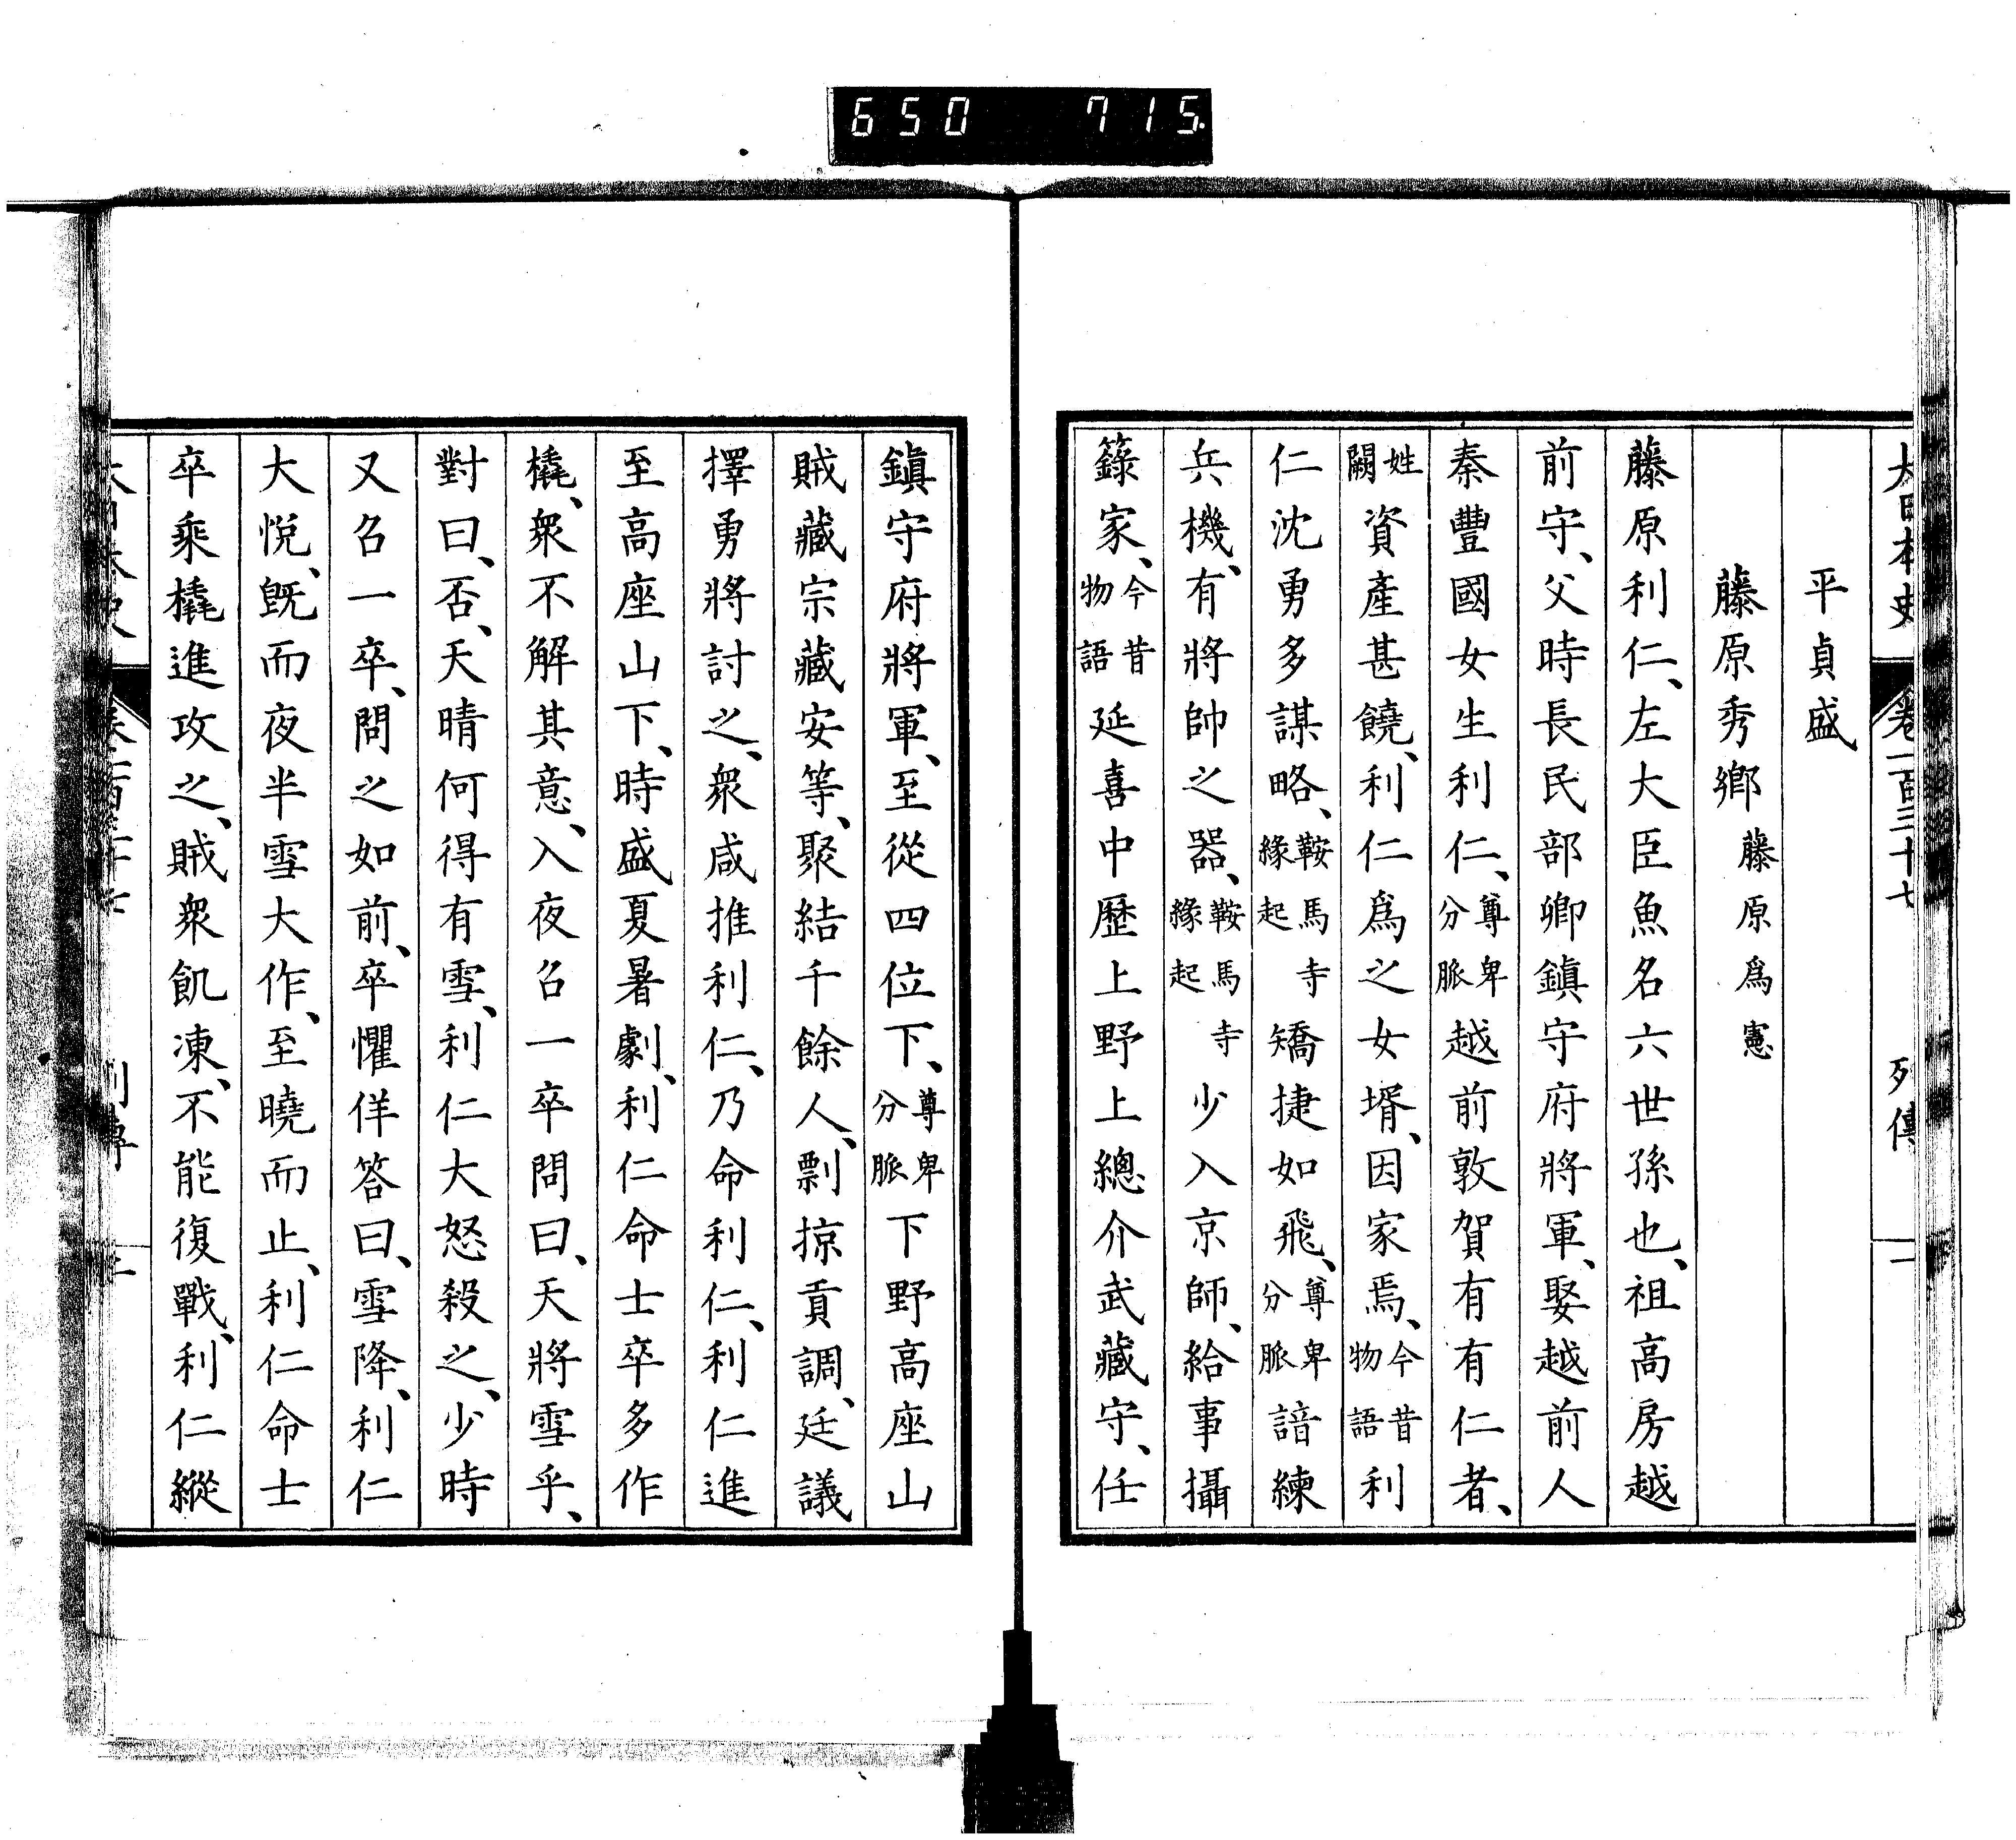 650 715
大日本史 卷一百三十七 列傳 一
平貞盛
藤原秀鄉 藤原爲憲
藤原利仁、左大臣魚名六世孫也、祖高房越
前守、父時長民部卿鎭守府將軍、娶越前人
秦豐國女生利仁、尊卑分脈越前敦賀有有仁者、
姓闕資產甚饒、利仁爲之女壻、因家焉、今昔物語利
仁沈勇多謀略、鞍馬寺緣起矯捷如飛、尊卑分脈諳練
兵機、有將帥之器、鞍馬寺緣起少入京師、給事攝
籙家、今昔物語延喜中歷上野上總介武藏守、任
鎭守府將軍、至從四位下、尊卑分脈下野高座山
賊藏宗藏安等、聚結千餘人、剽掠貢調、廷議
擇勇將討之、衆咸推利仁、乃命利仁、利仁進
至高座山下、時盛夏暑劇、利仁命士卒多作
橇、衆不解其意、入夜召一卒問曰、天將雪乎、
對曰、否、天晴何得有雪、利仁大怒殺之、少時
又召一卒、問之如前、卒懼佯答曰、雪降、利仁
大悅、旣而夜半雪大作、至曉而止、利仁命士
卒乘橇進攻之、賊衆飢凍、不能復戰、利仁縱